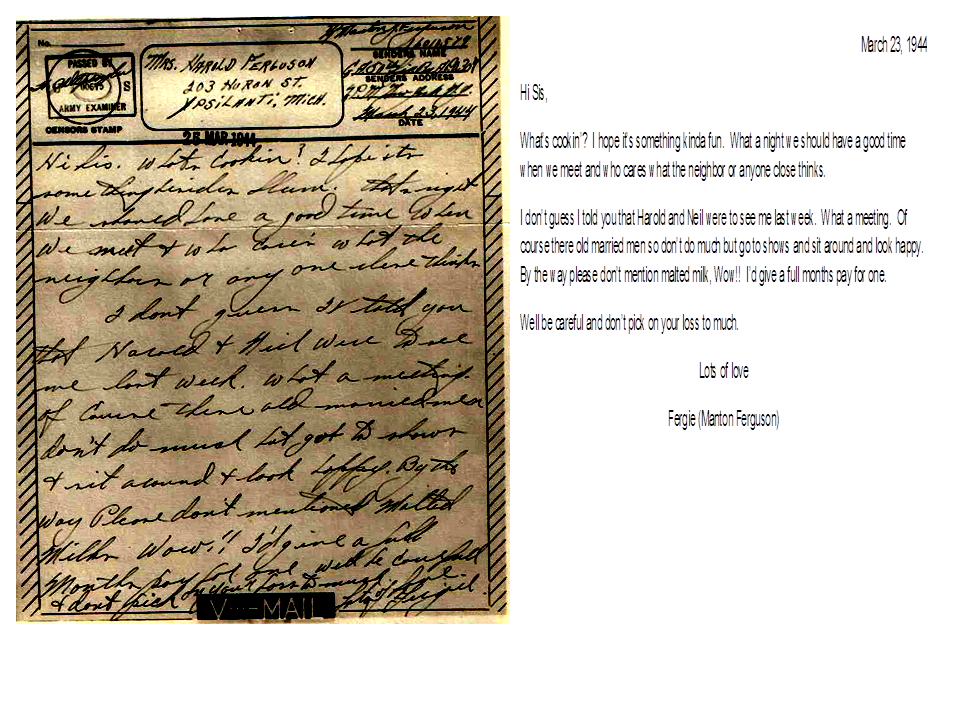 No.
PASSED BY
ARMY EXAMINER
S
CENSORS STAMP
MRS. HAROLD FERGUSON
203 HURON ST.
YPSILANTI, MICH.
SENDERS NAME
SENDERS ADDRESS
March 23, 1944
DATE
25 MAR 1944
Hi Sis. Whats Cookin? I hope its
something besides Slum. that night
we should have a good time when
we meet & who cares what the
neighbors or any one else thinks
I dont guess I told you
that Harold & Neil were to see
me last week. What a meeting.
of Course these old married men
don't do much but go to shows
& sit around & look happy. By the
way Please don't mentioned Malted
Milks Wow!! I'd give a full
Months pay for one. will be careful
& dont pick on your boss to much. Lots of love
Fergie
V---MAIL
March 23, 1944
Hi Sis,
What's cookin'? I hope it's something kinda fun. What a night we should have a good time
when we meet and who cares what the neighbor or anyone close thinks.
I don't guess I told you that Harold and Neil were to see me last week. What a meeting. Of
course there old married men so don't do much but go to shows and sit around and look happy.
By the way please don't mention malted milk, Wow!! I'd give a full months pay for one.
We'll be careful and don't pick on your loss to much.
Lots of love
Fergie (Manton Ferguson)